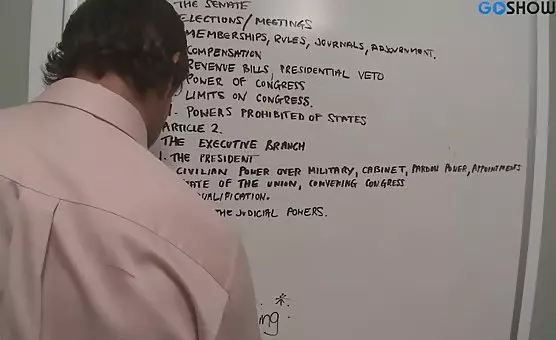 GOSHOW
THE SENATE
ELECTIONS/ MEETINGS
MEMBERSHIPS, RULES, JOURNALS, ADJOURNMENT.
COMPENSATION
REVENUE BILLS, PRESIDENTIAL VETO
POWER OF CONGRESS
LIMITS ON CONGRESS.
1. POWERS PROHIBITED OF STATES
ARTICLE 2.
THE EXECUTIVE BRANCH
1. THE PRESIDENT
CIVILIAN POWER OVER MILITARY, CABINET, PARDON POWER, APPOINTMENTS
OF THE UNION, CONVENING CONGRESS
THE JUDICIAL POWERS.